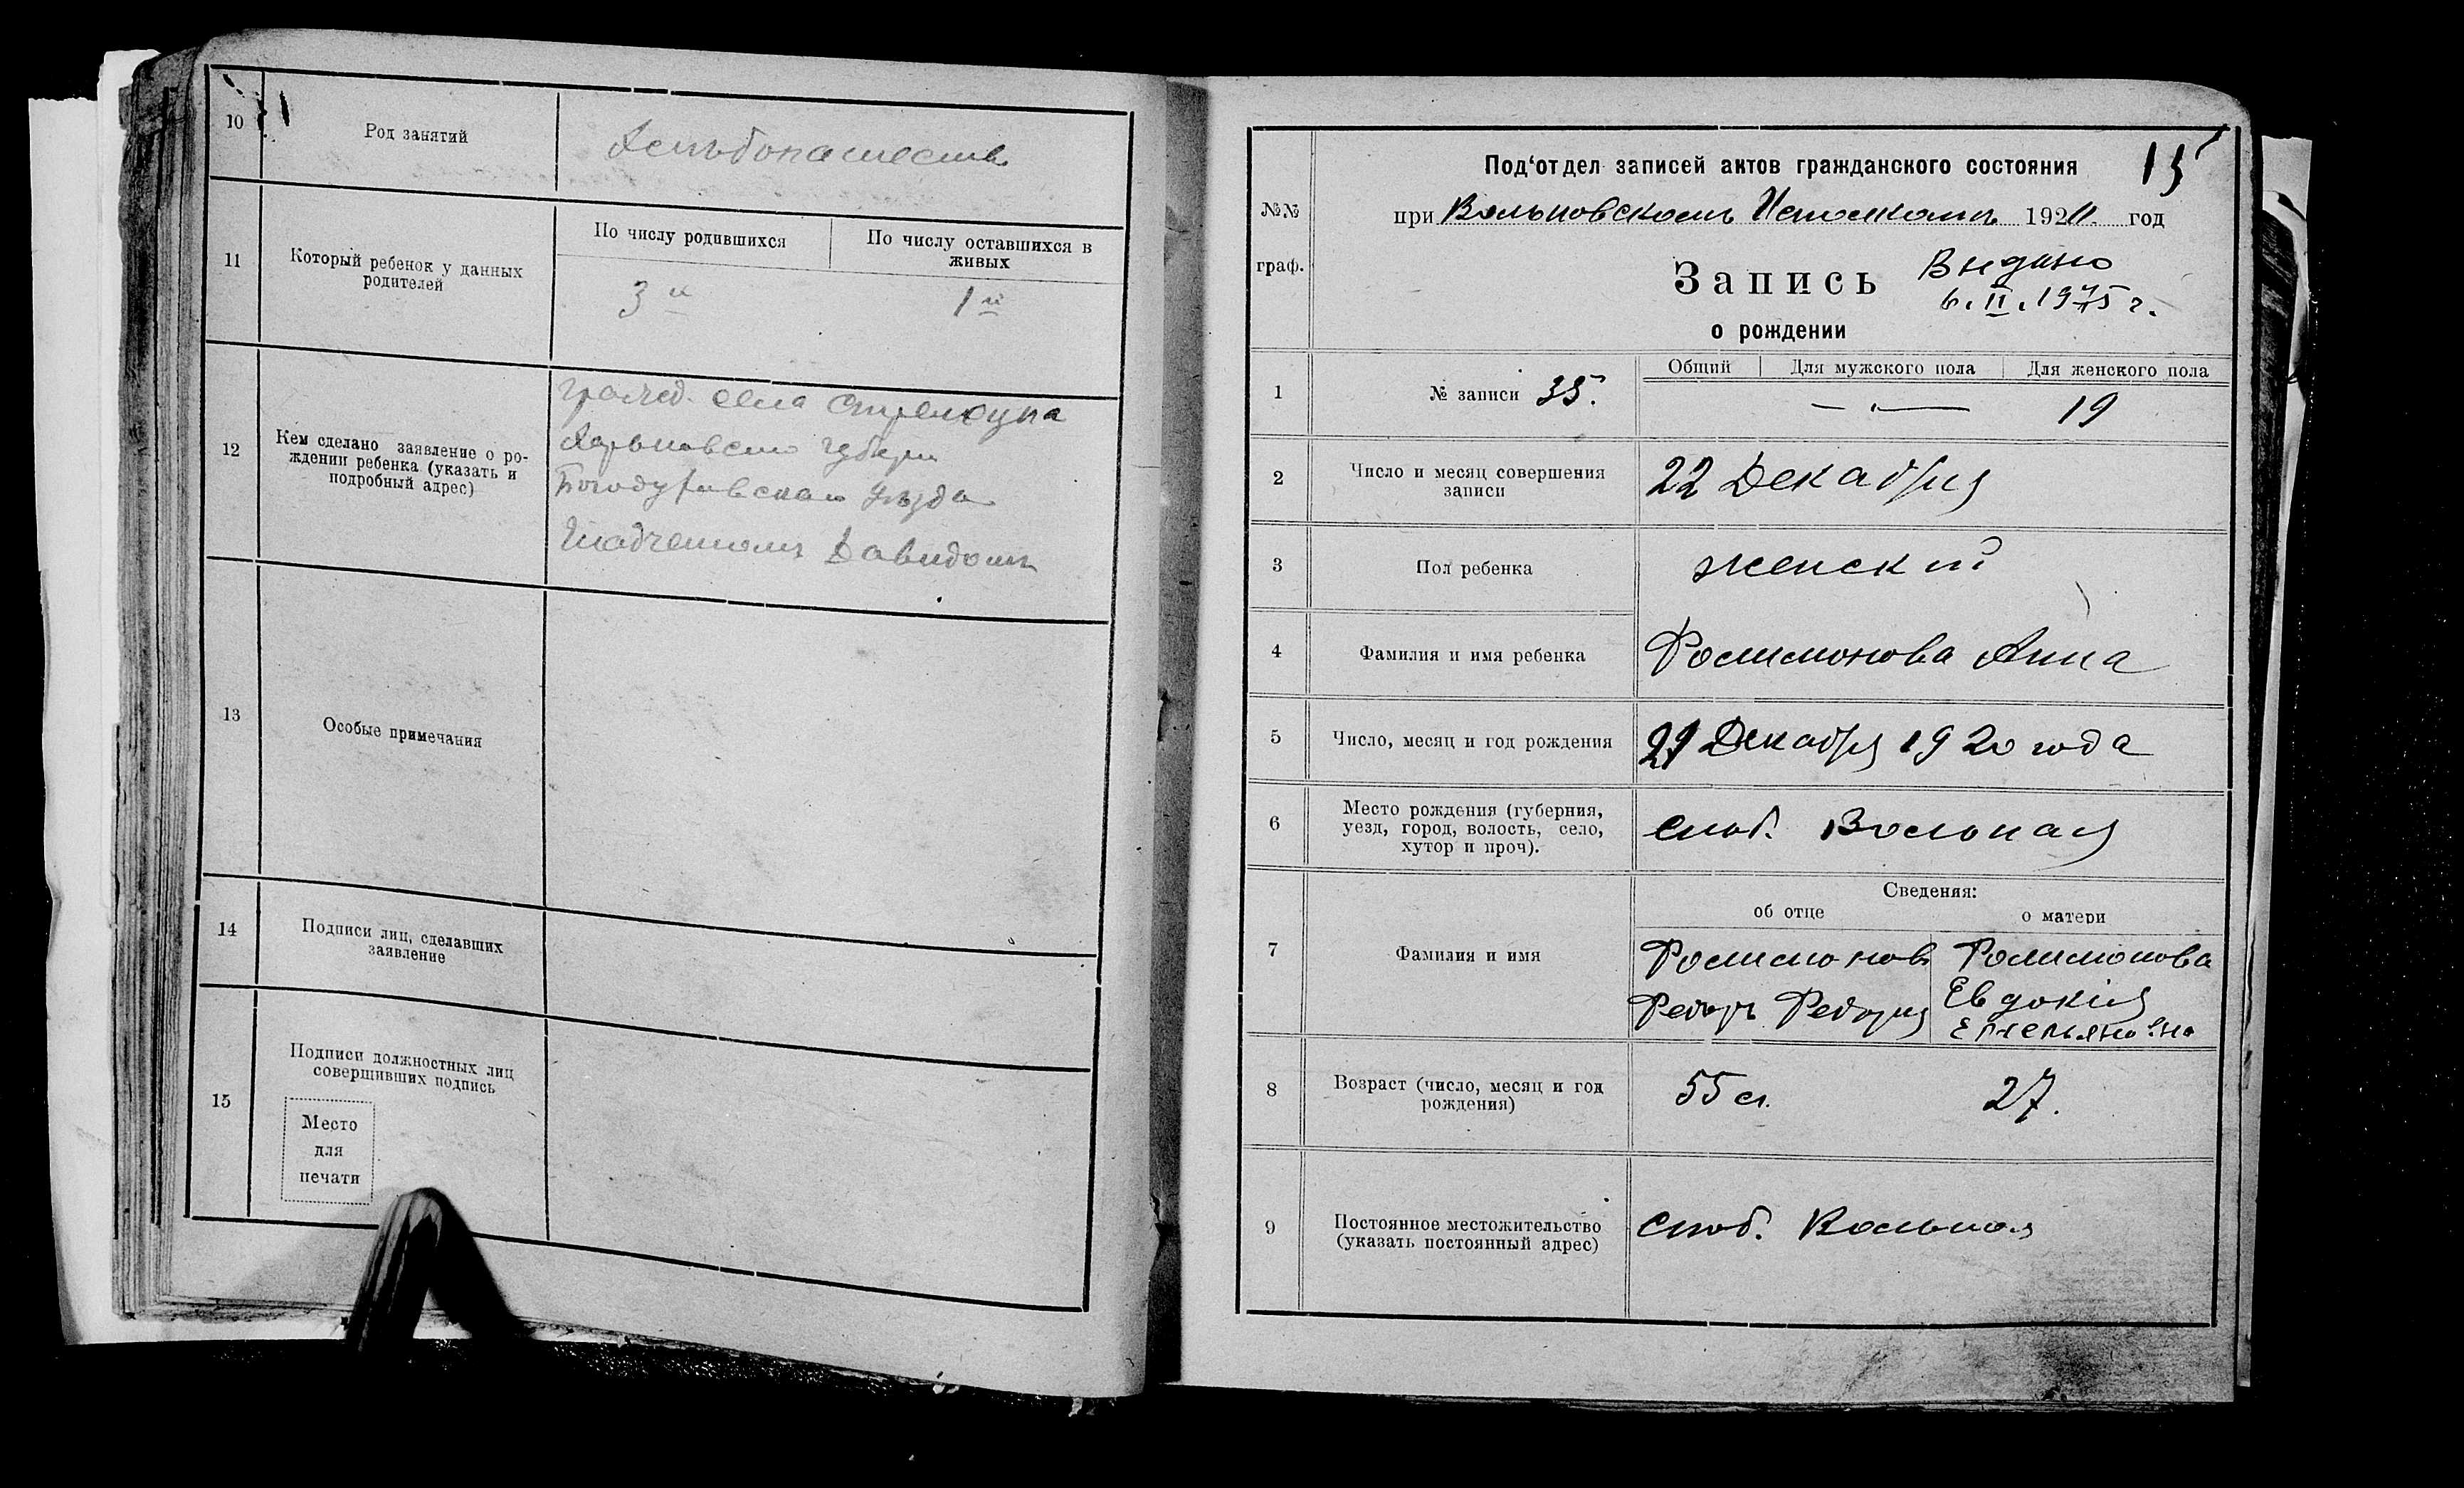 10
Род занятий
Хлѣбопашество
11
Который ребенок у данных
родителей
По числу родившихся
По числу оставшихся в
живых
3й
1й
12
Кем сделано заявление о ро-
ждении ребенка (указать и
подробный адрес)
гражд. села
Харьковской губерн
Богодуховскаго уѣзда
Давидомъ
13
Особые примечания
14
Подписи лиц, сделавших
заявление
15
Подписи должностных лиц
совершивших подпись
Место
для
печати
15
Под‘отдел записей актов гражданского состояния
№№
граф.
при Вольновскомъ Исполкомъ 192 год
Запись
Выдано
6. II. 1975 г.
о рождении
1
№ записи 35.
Общий
Для мужского пола
Для женского пола
— „ —
19
2
Число и месяц совершения
записи
22 Декабря
3
Пол ребенка
женский
4
Фамилия и имя ребенка
Филимонова Анна
5
Число, месяц и год рождения
21 Декабря 1920 года
6
Место рождения (губерния,
уезд, город, волость, село,
хутор и проч).
слоб. Вольная
Сведения:
об отце
о матери
7
Фамилия и имя
Филимонов
Федоръ
Филимонова
Евдокія
Емельяновна
8
Возраст (число, месяц и год
рождения)
55 л.
27.
9
Постоянное местожительство
(указать постоянный адрес)
слоб. Вольная